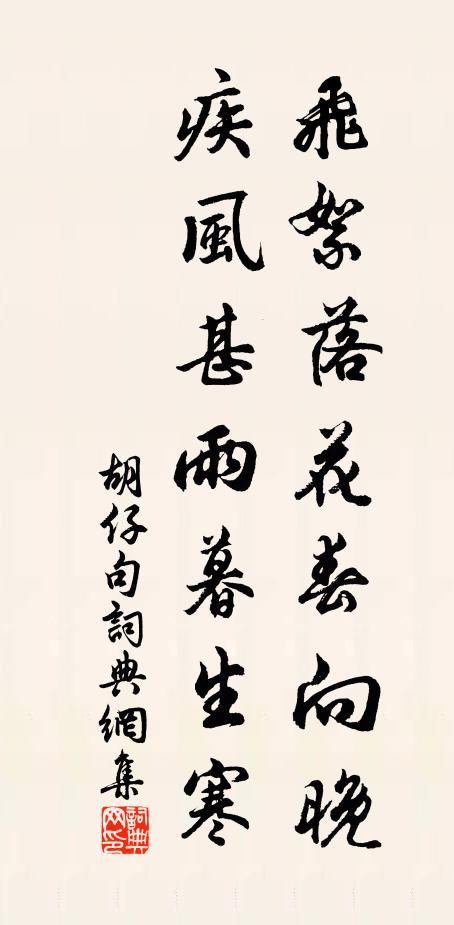 飛絮落花春向晚
疾風甚雨暮生寒
胡仔句詞典網集
詞典網印